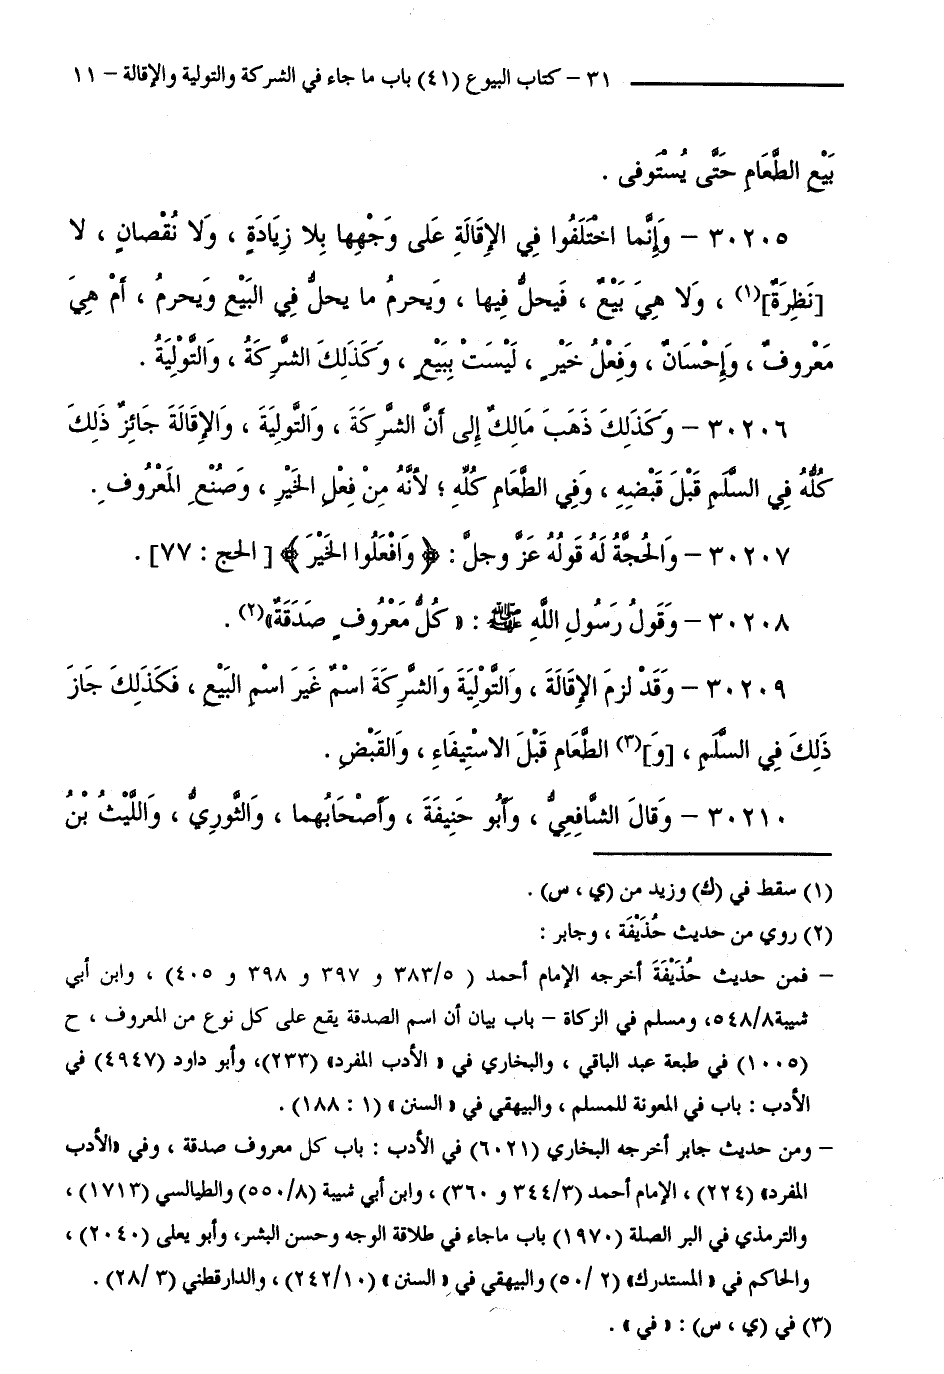 ٣١ – كتاب البيوع (٤١) باب ما جاء في الشركة والتولية والإقالة – ١١
بَيْعِ الطَّعَامِ حَتَّى يُسْتَوفى .
٣٠٢٠٥ – وَإِنَّما اخْتَلَفُوا فِي الإِقَالَةِ عَلى وَجْهِها بِلا زِيَادَةٍ ، وَلا نُقْصانٍ ، لا
[نَظِرَةٌ](١) ، وَلا هِيَ بَيْعٌ ، فَيحلُّ فِيها ، وَيحرمُ ما يحلُّ فِي البَيْعِ وَيحرمُ ، أَمْ هِيَ
مَعْروفٌ ، وَإِحْسَانٌ ، وَفِعْلُ خَيْرٍ ، لَيْسَتْ بِبَيْعٍ ، وَكَذَلِكَ الشَّرِكَةُ ، وَالتَّوْلِيَةُ .
٣٠٢٠٦ – وَكَذَلِكَ ذَهَبَ مَالِكٌ إِلى أَنَّ الشَّرِكَةَ ، وَالتَّولِيَةَ ، وَالإِقَالَةَ جَائِزٌ ذَلِكَ
كُلُّهُ فِي السَّلَمِ قَبْلَ قَبْضِهِ ، وَفِي الطَّعَامِ كُلِّهِ ؛ لأَنَّهُ مِنْ فِعْلِ الخَيْرِ ، وَصُنْعِ المَعْرُوفِ .
٣٠٢٠٧ – وَالحُجَّةُ لَهُ قَولُهُ عَزَّ وجلَّ : ﴿ وَافْعَلُوا الخَيْرَ ﴾ [ الحج : ٧٧] .
٣٠٢٠٨ – وَقَولُ رَسُولِ اللَّهِ ﷺ : « كُلُّ مَعْرُوفٍ صَدَقَةٌ»(٢) .
٣٠٢٠٩ – وَقَدْ لزمَ الإِقَالَةَ ، وَالتَّوْلِيَةَ وَالشَّرِكَةَ اسْمٌ غَيَرَ اسْمِ البَيْعِ ، فَكَذَلِكَ جَازَ
ذَلِكَ فِي السَّلَمِ ، [وَ](٣) الطَّعَامِ قَبْلَ الاسْتِيفَاءِ ، وَالقَبْضِ .
٣٠٢١٠ – وَقالَ الشَّافِعِيُّ ، وَأَبُو حَنِيفَةَ ، وَأَصْحَابُهما ، وَالثَّوريُّ ، وَاللَّيْثُ بْنُ
(١) سقط في (ك) وزيد من (ي ، س) .
(٢) روي من حديث حُذَيْفَة ، وجابر :
– فمن حديث حُذَيْفَةَ أخرجه الإمام أحمد ( ٣٨٣/٥ و ٣٩٧ و ٣٩٨ و ٤٠٥) ، وابن أبي
شيبة٥٤٨/٨، ومسلم في الزكاة – باب بيان أن اسم الصدقة يقع على كل نوع من المعروف ، ح
(١٠٠٥) في طبعة عبد الباقي ، والبخاري في « الأدب المفرد» (٢٣٣)، وأبو داود (٤٩٤٧) في
الأدب : باب في المعونة للمسلم ، والبيهقي في « السنن » (١ : ١٨٨) .
– ومن حديث جابر أخرجه البخاري (٦٠٢١) في الأدب : باب كل معروف صدقة ، وفي «الأدب
المفرد» (٢٢٤) ، الإمام أحمد (٣٤٤/٣ و ٣٦٠) ، وابن أبي شيبة (٥٥٠/٨) والطيالسي (١٧١٣) ،
والترمذي في البر الصلة (١٩٧٠) باب ماجاء في طلاقة الوجه وحسن البشر، وأبو يعلى (٢٠٤٠) ،
والحاكم في « المستدرك» (٢ /٥٠) والبيهقي في « السنن » (٢٤٢/١٠) ، والدارقطني (٣ /٢٨) .
(٣) في (ي ، س) : « في » .